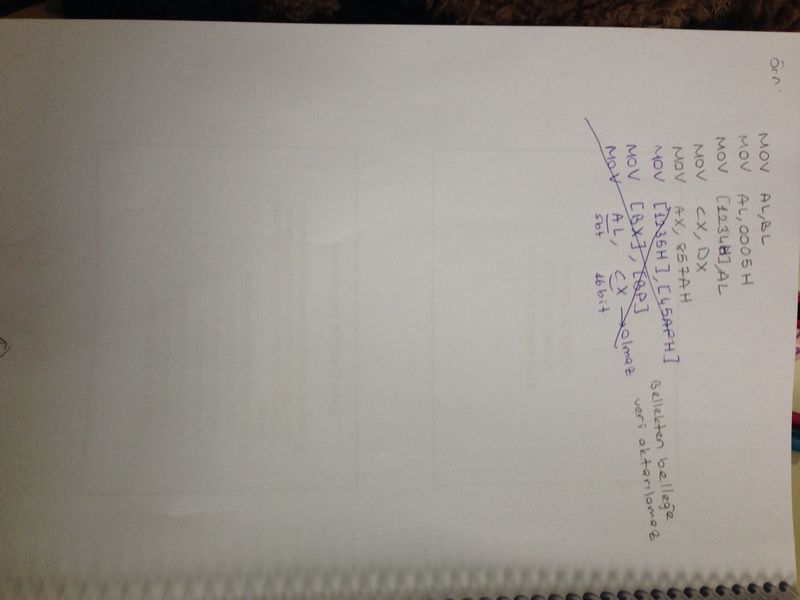 Örn:
MOV AL,BL
MOV AL,0005H
MOV [1234H],AL
MOV CX,DX
MOV AX,857AH
MOV [1235H],[45AFH] Bellekten belleğe
MOV [BX],[BP] veri aktarılamaz
MOV AL, CX → olmaz
8bit 16bit